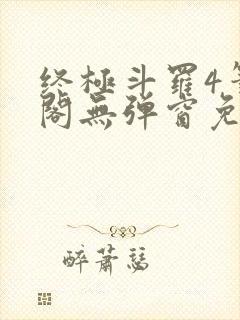 终极斗罗4
阁无弹窗免
醉萧瑟